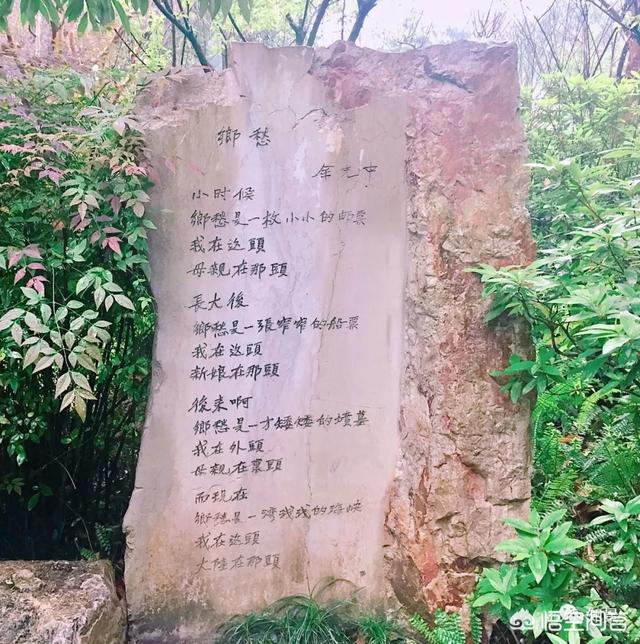 鄉愁
余光中
小时候
鄉愁是一枚小小的邮票
我在这頭
母親在那頭
長大後
鄉愁是一張窄窄的船票
我在这頭
新娘在那頭
後来啊
鄉愁是一方矮矮的墳墓
我在外頭
母親在裏頭
而现在
鄉愁是一湾浅浅的海峡
我在这頭
大陸在那頭
悟空问答